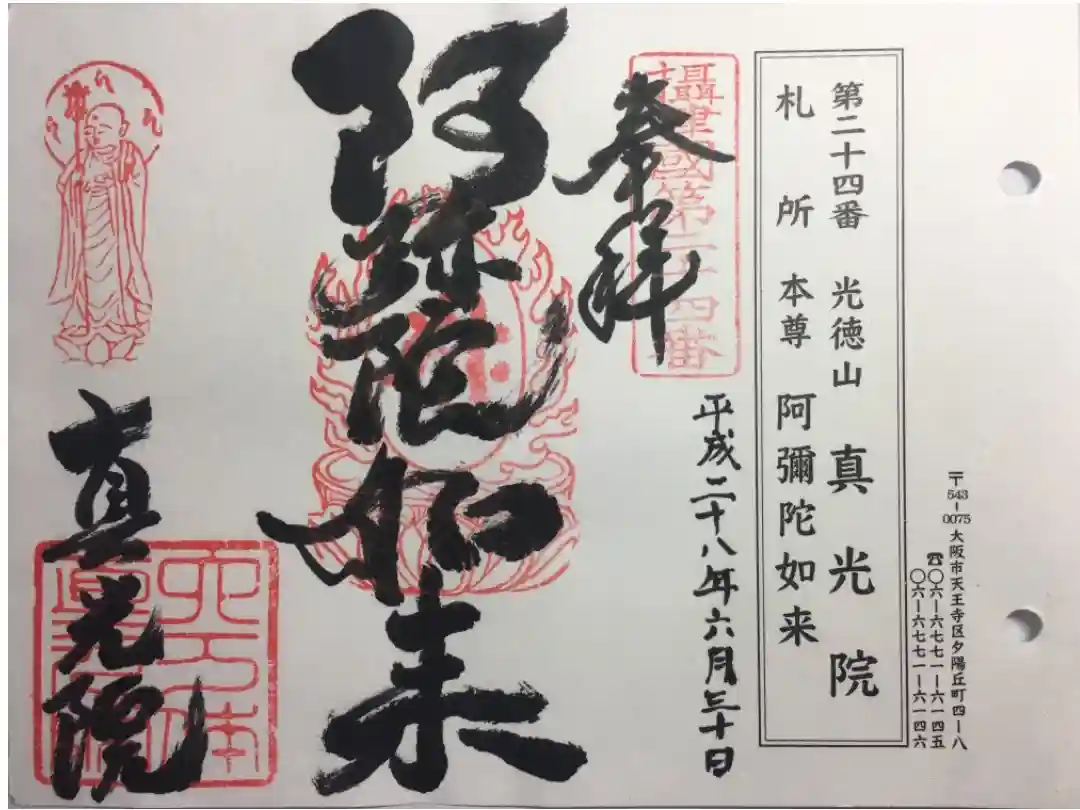 〒543-0075大阪市天王寺区夕陽丘町四ー八
☎〇六ー六七七一ー六一四五
〇六ー六七七一ー六一四六
第二十四番 光徳山 真光院
札所 本尊 阿彌陀如来
攝津國第二十四番
奉拝
平成二十八年六月三十日
阿弥陀如来
真光院